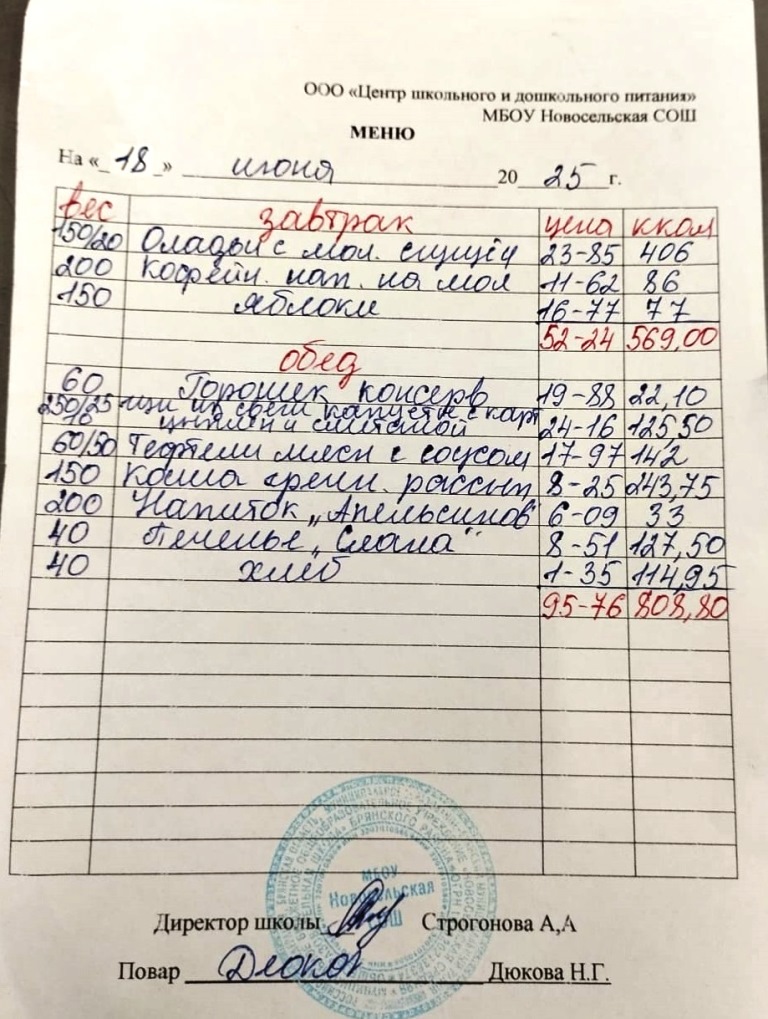 ООО «Центр школьного и дошкольного питания»
МБОУ Новосельская СОШ
МЕНЮ
На «_18_» июня 20 25 г.
вес завтрак цена ккал
150/20 Оладьи с мол. сгущ 23-85 406
200 Кофейн. нап. на мол 11-62 86
150 яблоки 16-77 77
52-24 569,00
обед
60 Горошек консерв 19-88 22,10
250/25 щи из свеж капусты с карт
10 циплен и сметаной 24-16 125,50
60/50 Тефтели мясн с соусом 17-97 142
150 Каша гречн. рассып 8-25 243,75
200 Напиток „Апельсинов" 6-09 33
40 Печенье „ 8-51 127,50
40 хлеб 1-35 114,95
95-76 808,80
МБОУ
Новосельская
СОШ
Директор школы Строгонова А,А
Повар Дюкова Н.Г.